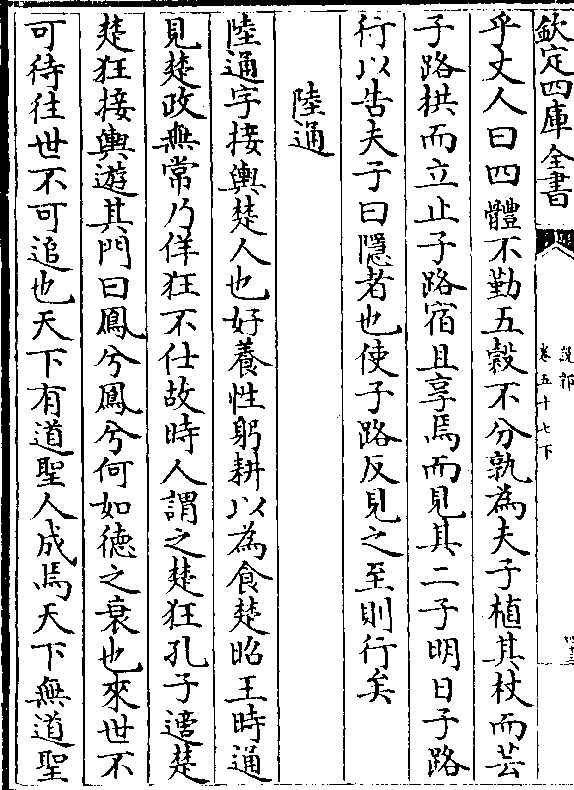 欽定四庫全書
說郛
卷五十七下
乎丈人曰四體不勤五穀不分孰為夫子植其杖而芸
子路栱而立止子路宿且享焉而見其二子明日子路
行以告夫子曰隱者也使子路反見之至則行矣
陸通
陸通字接輿楚人也好養性躬耕以為食楚昭王時通
見楚政無常乃佯狂不仕故時人謂之楚狂孔子適楚
楚狂接輿遊其門曰鳳兮鳳兮何如徳之衰也來世不
可待往世不可追也天下有道聖人成焉天下無道聖